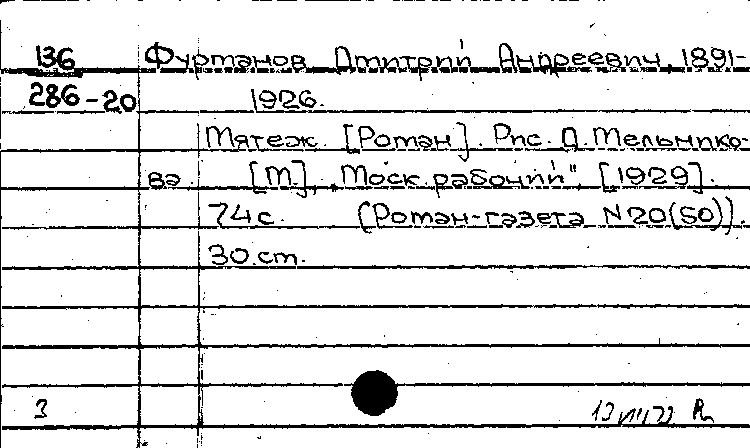 136 Фурманов, Дмитрий Андреевич, 1891-
286-20 1926.
Мятеж. [Роман]. Рис. Д. Мельнико-
ва. [М.], „Моск. рабочий", [1929].
74 с. (Роман-газета N 20(50)).
30 ст.
3